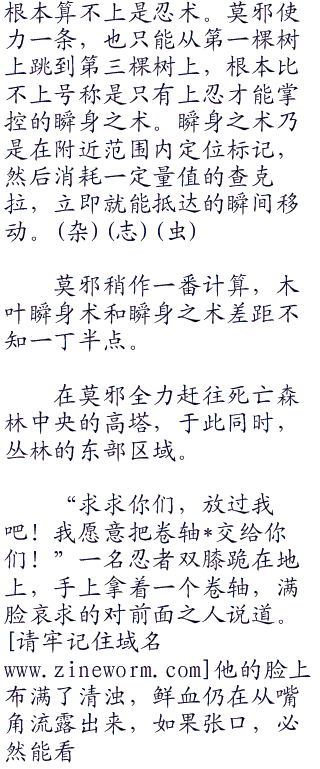 根本算不上是忍术。莫邪使
力一条，也只能从第一棵树
上跳到第三棵树上，根本比
不上号称是只有上忍才能掌
控的瞬身之术。瞬身之术乃
是在附近范围内定位标记，
然后消耗一定量值的查克
拉，立即就能抵达的瞬间移
动。(杂)(志)(虫)
莫邪稍作一番计算，木
叶瞬身术和瞬身之术差距不
知一丁半点。
在莫邪全力赶往死亡森
林中央的高塔，于此同时，
丛林的东部区域。
“求求你们，放过我
吧！我愿意把卷轴*交给你
们！”一名忍者双膝跪在地
上，手上拿着一个卷轴，满
脸哀求的对前面之人说道。
[请牢记住域名
www.zineworm.com]他的脸上
布满了清浊，鲜血仍在从嘴
角流露出来，如果张口，必
然能看